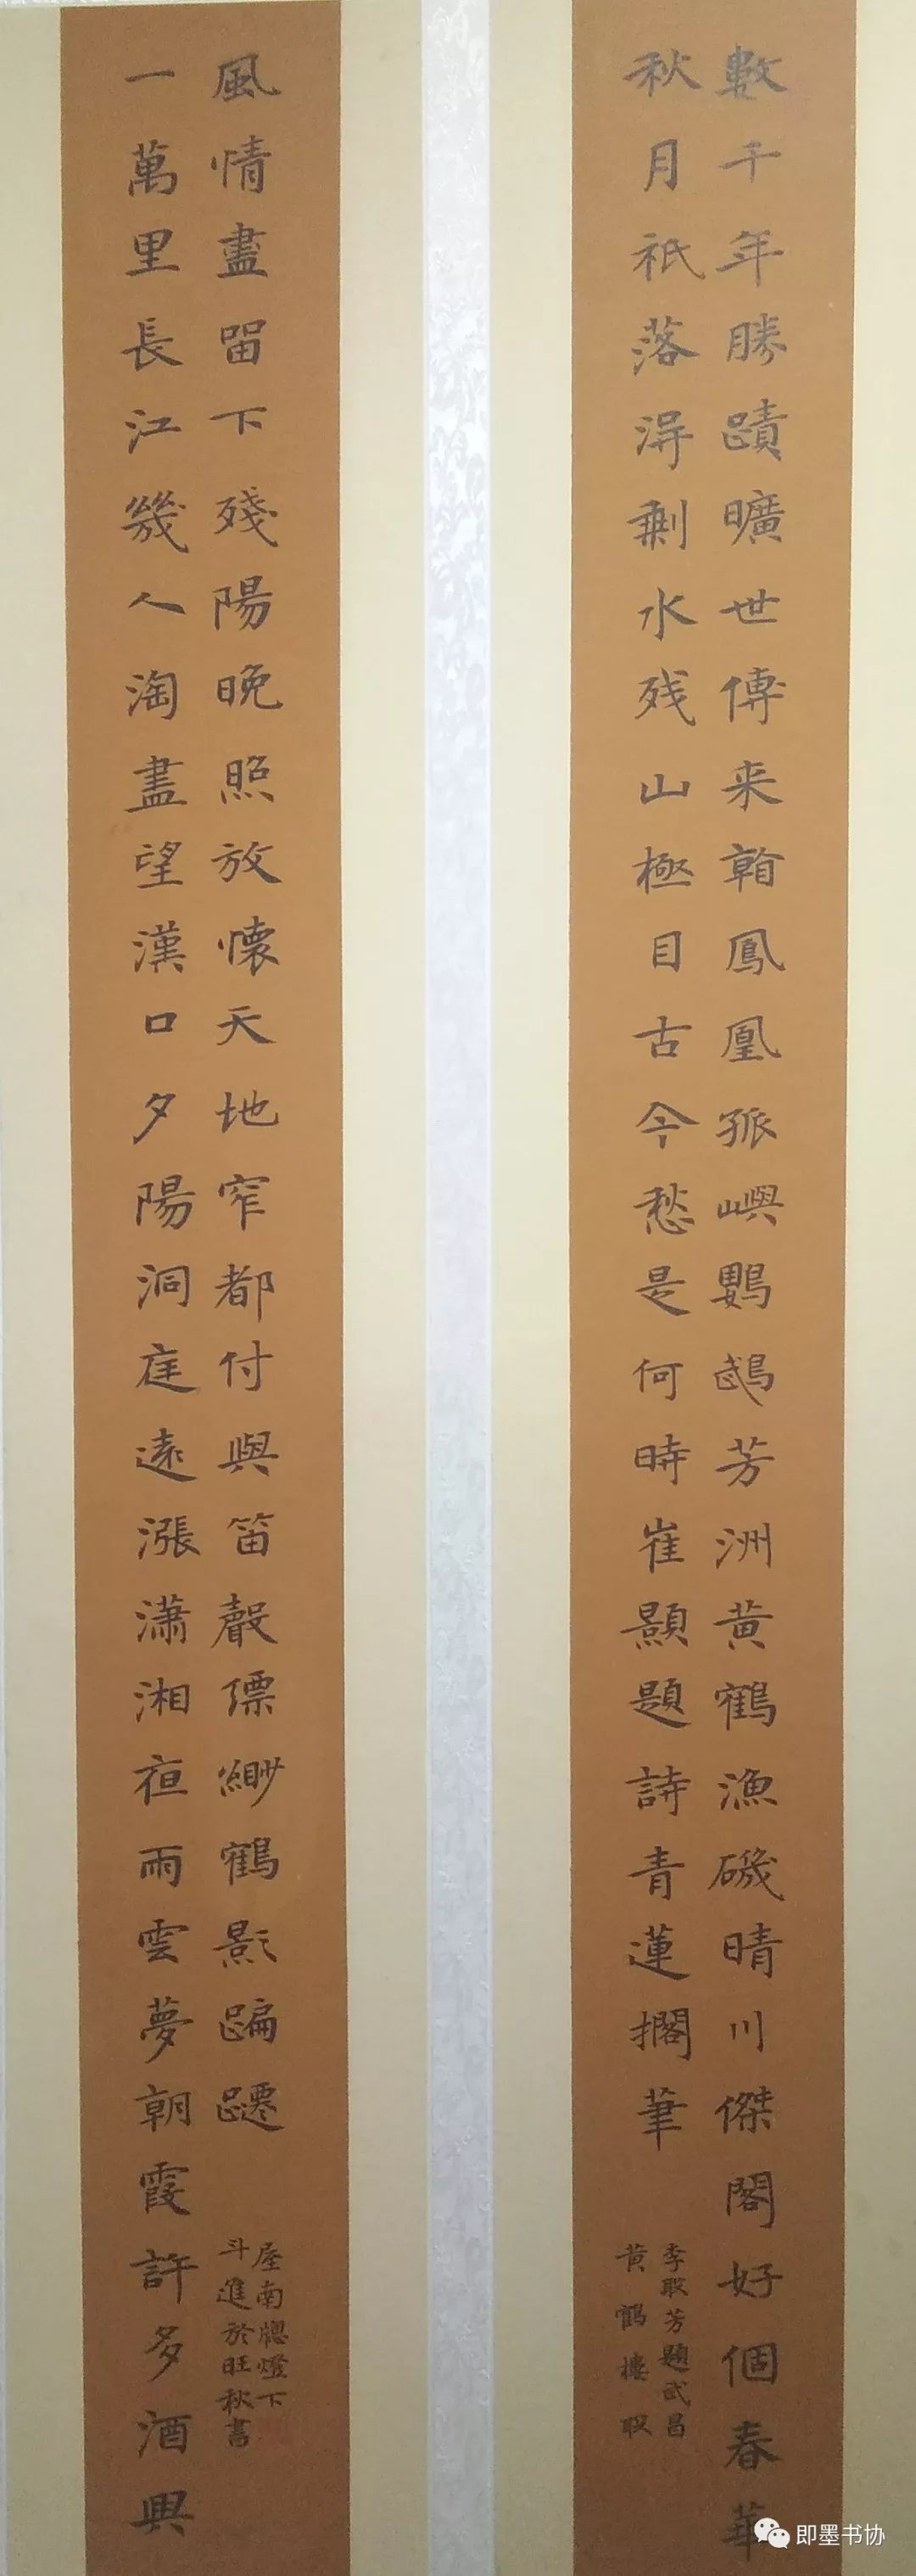 數千年勝蹟曠世傳来看鳳凰孤嶼鸚鵡芳洲黄鶴漁磯晴川傑閣好個春華
秋月祇落淂剩水残山極目古今愁是何時崔顥題詩青蓮擱筆
李聯芳題武昌
黄鶴樓聯
一萬里長江幾人淘盡望漢口夕陽洞庭遠漲瀟湘夜雨雲夢朝霞許多酒興
風情盡留下殘陽晚照放懷天地窄都付與笛聲縹緲鶴影蹁躚
屋南牕燈下
斗進於旺秋書
即墨书协